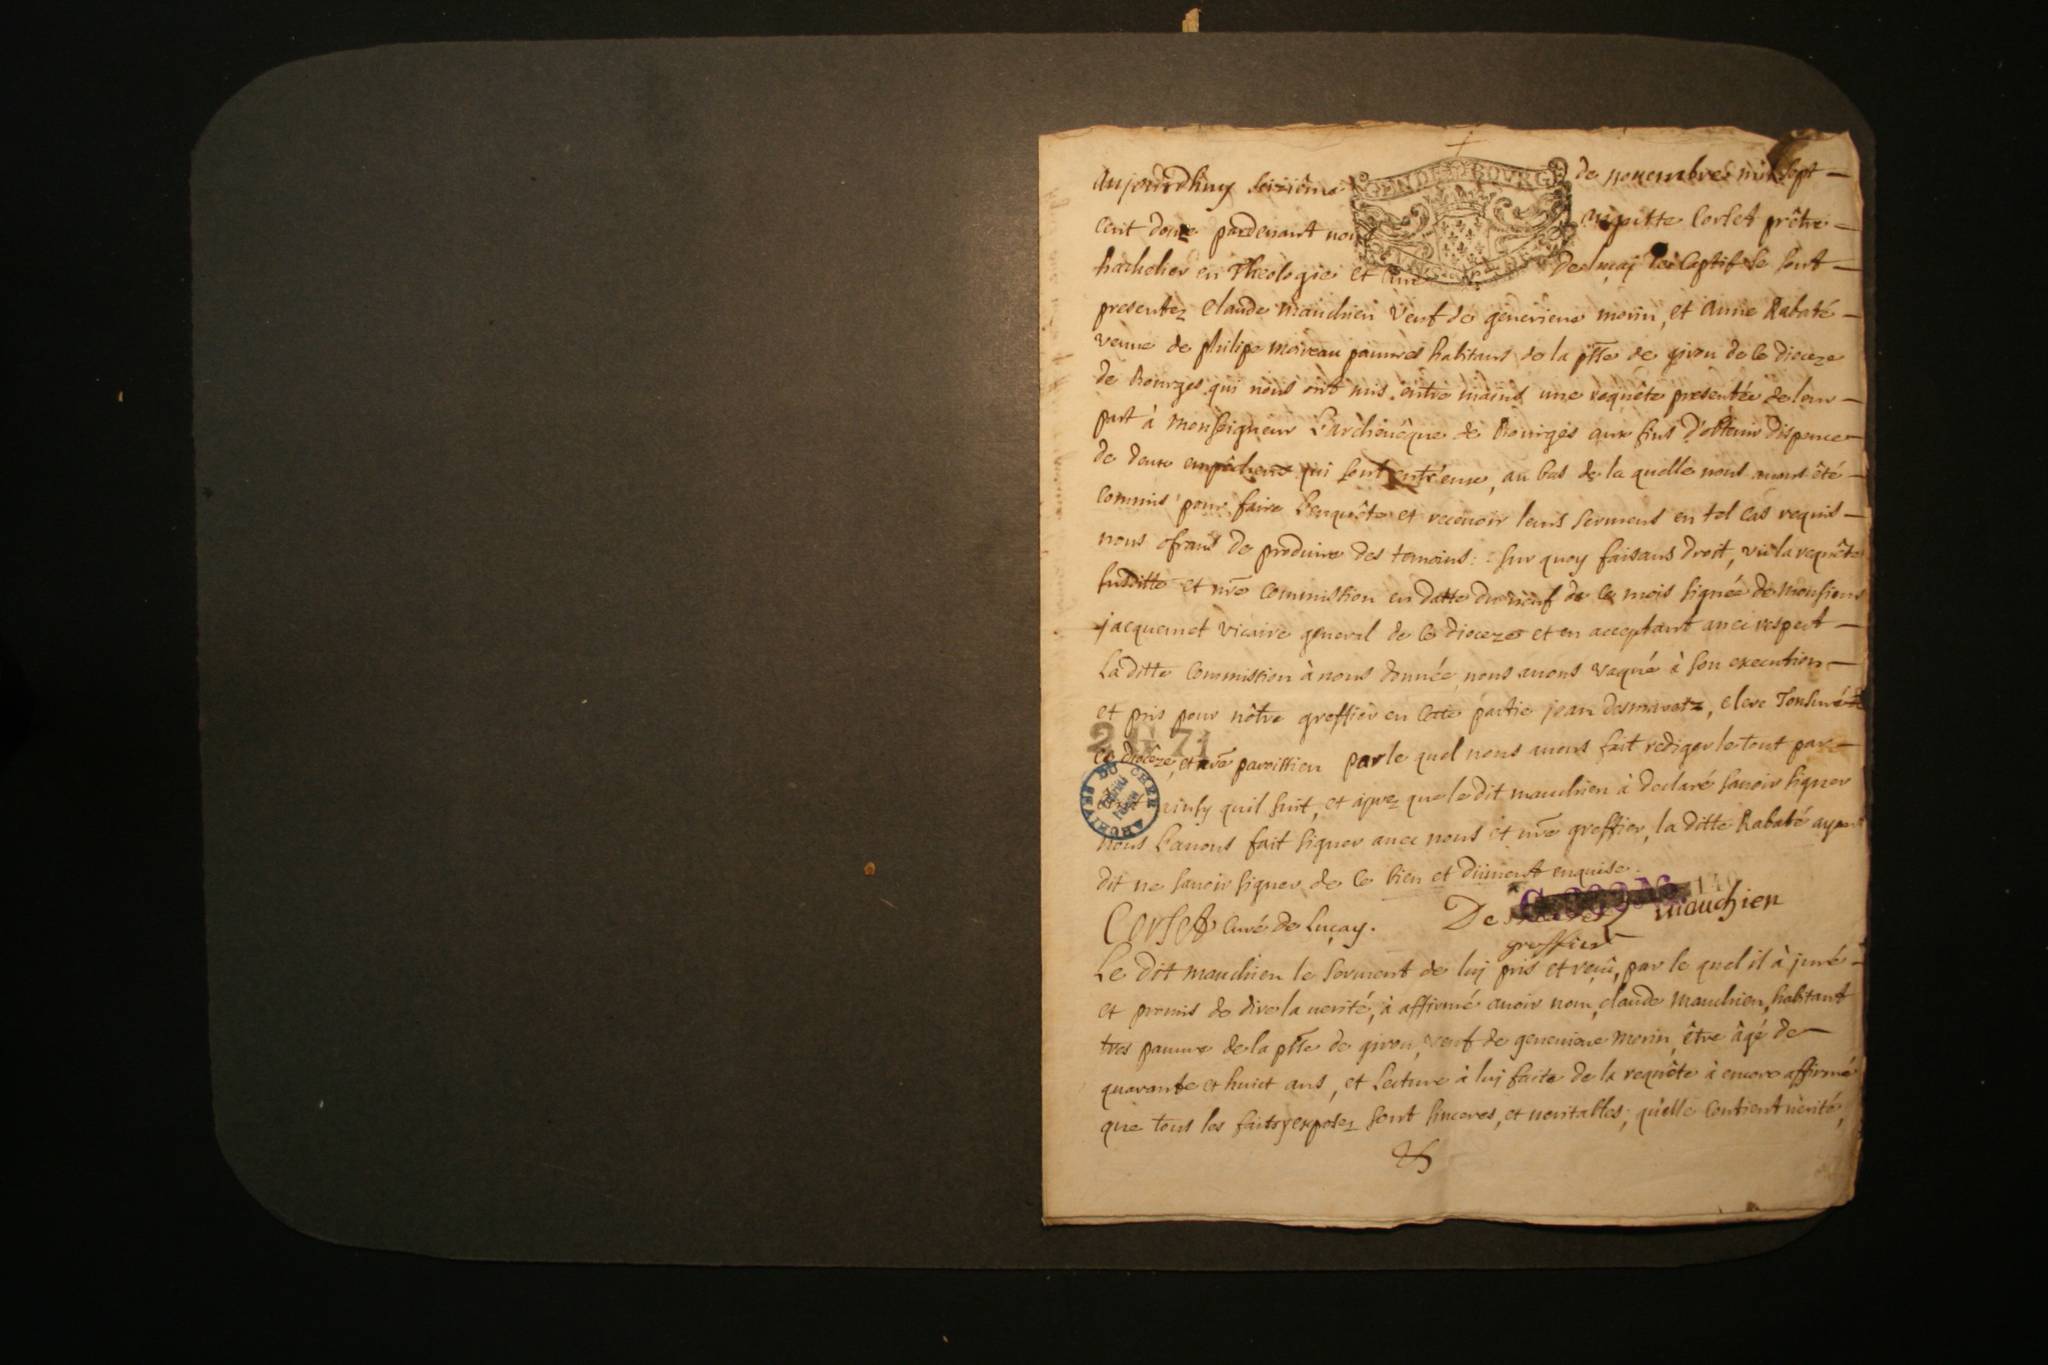 Aujourdhuy seizième de nouembre mil sept
cent douze pardeuant nous Corset prêtre
bachelier en Theologie et curé se sont
presentez claude mauchien veuf de geneuieue morin, et anne Rabaté
veuue de philipe moreau pauures habitans de la psse de giuou de ce dioceze
de Bourges qui nous ont mis entre mains une requête presentée de leur
part à monseigneur L'archeuêque de Bourges aux fins d'obtenir dispence
de deux qui sont entr'eux, au bas de la quelle nous auons été
commis pour faire L'enquête et receuoir leurs sermens en tel cas requis
nous ofrans de produire des temoins: sur quoy faisans droit, vû la requête
susditte et nre commission en datte du neuf de ce mois signée de monsieur
jacquemet vicaire general de ce dioceze et en acceptant auec respect
La ditte commission à nous donnée, nous auons vaqué à son execution
et pris pour nôtre greffier en cette partie jean desmaretz, clerc Tonsuré de
2 G 71
ce diôceze, et nre paroissien par le quel nous auons fait rediger le tout par
ainsy quil suit, et aprez que le dit mauchien à declaré sauoir signer
ARCHIVES DU CHER
nous L'auons fait signer auec nous et nre greffier, la ditte Rabaté ayant
dit ne sauoir signer de ce bien et dûment enquise.
Corset curé de Luçay. mauchien
greffier
Le dit mauchien le serment de luy pris et reçû, par le quel il à juré
et promis de dire la uerité, à affirmé auoir nom, claude mauchien, habitant
tres pauure de la psse de giuou, veuf de geneuieue morin, être âgé de
quarante et huict ans, et Lecture à luy faite de la requête à encore affirmé
que tous les faits y exposez sont sinceres, et ueritables, qu'elle contient uerité,